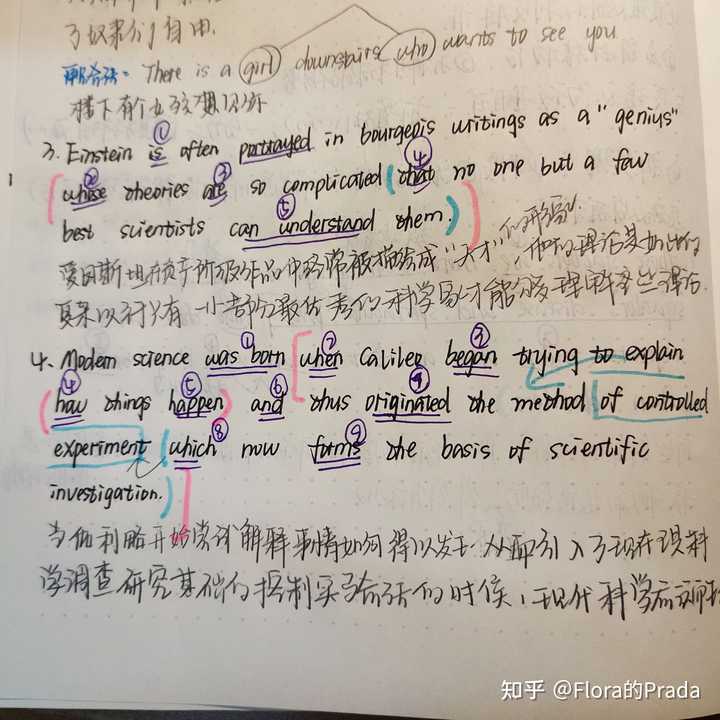 了奴隶们自由.
There is a girl downstairs who wants to see you
楼下有个女孩想见你
①
3. Einstein is often portrayed in bourgeois writings as a "genius"
② ③ ④
whose theories are so complicated (that no one but a few
⑤
best scientists can understand them.)
爱因斯坦 在 阶级作品中经常被描绘成 "天才" 的形象, 他的理论是如此的
复杂以 只有一小部分最优秀的科学家才能够理解这些理论.
① ② ③
4. Modern science was born when Galileo began trying to explain
④ ⑤ ⑥ ⑦
how things happen and thus originated the method of controlled
⑧ ⑨
experiment which now forms the basis of scientific
investigation.
当伽利略开始尝试解释事情如何得以发生 从而引入了现在 科
学调查研究基础的控制实验 的时候, 现代科学
知乎 @Flora的Prada